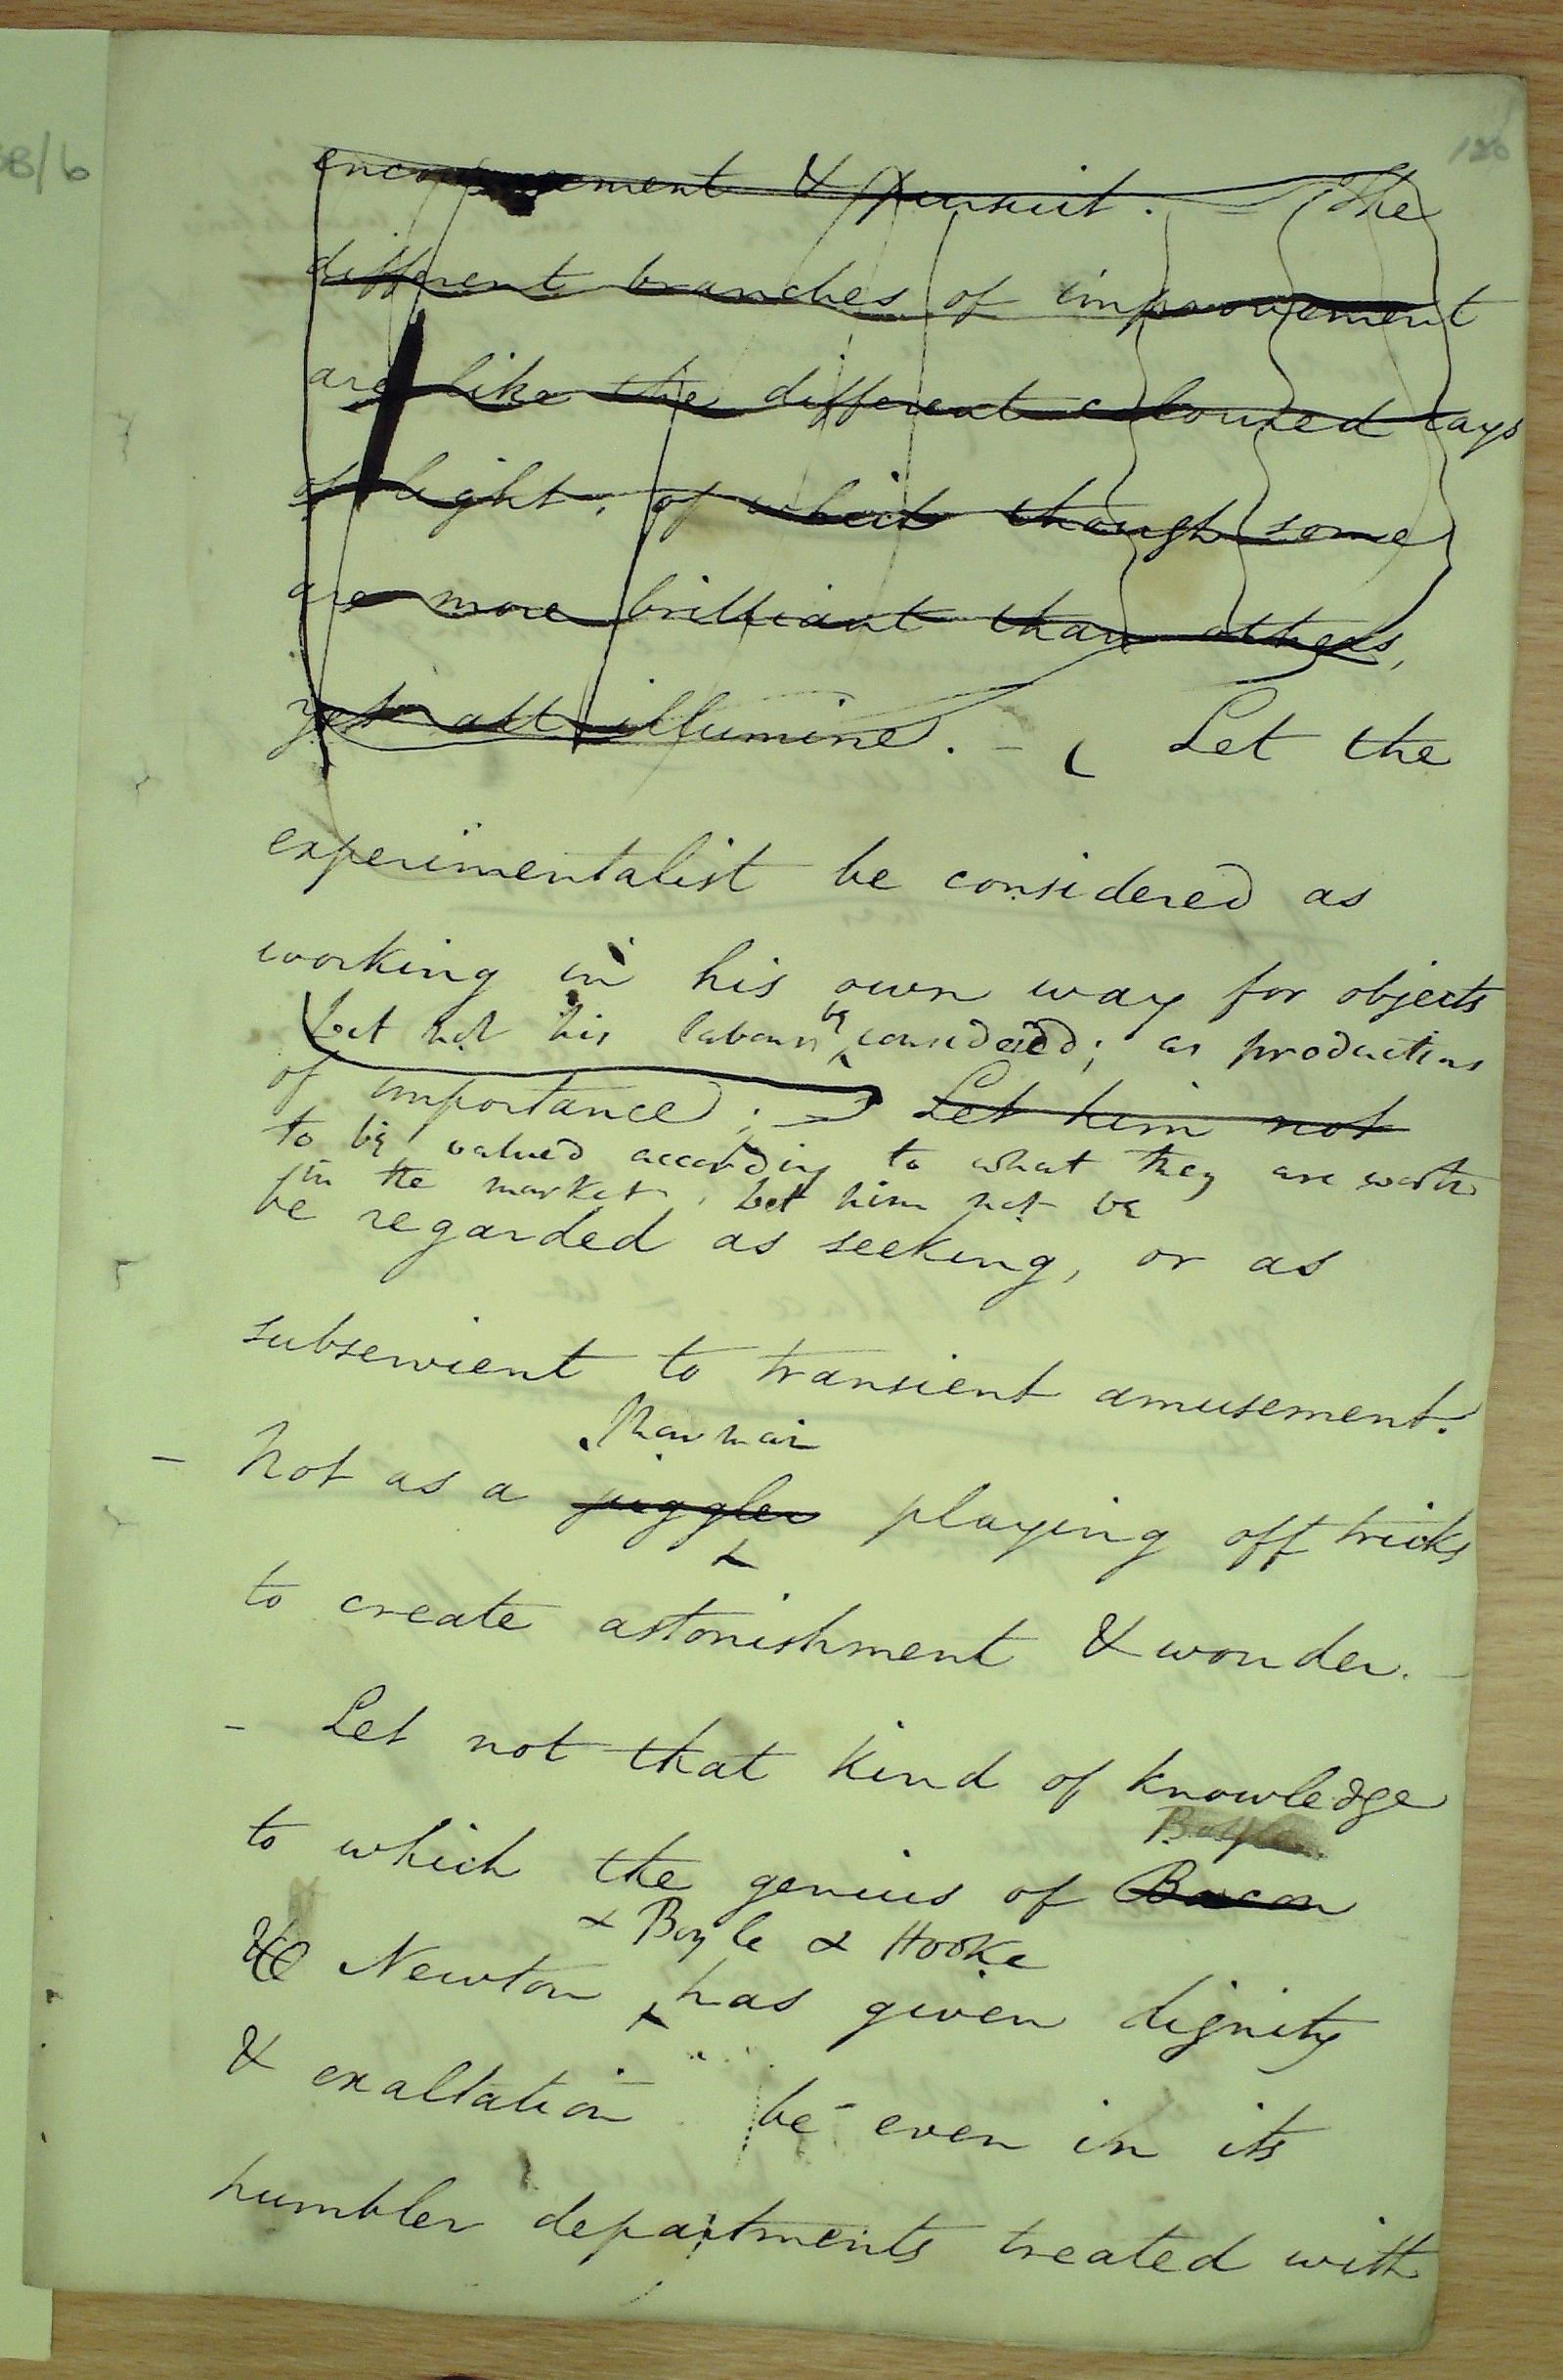 3B/6
120
encouragement & pursuit. — The
different branches of improvement
are like the different coloured rays
of light, of which though some
are more brilliant than others,
yet all illumine. — Let the
experimentalist be considered as
working in his own way for objects
Let not his labours be considered; as productions
of importance; Let him not
to be valued according to what they are worth
in the market. Let him not be
be regarded as seeking, or as
subservient to transient amusement.
- Not as a juggler playing off tricks
to create astonishment & wonder. -
- Let not that kind of knowledge
Boyle
to which the genius of Bacon
& Boyle & Hooke
& Newton has given dignity
& exaltation be even in its
humbler departments treated with